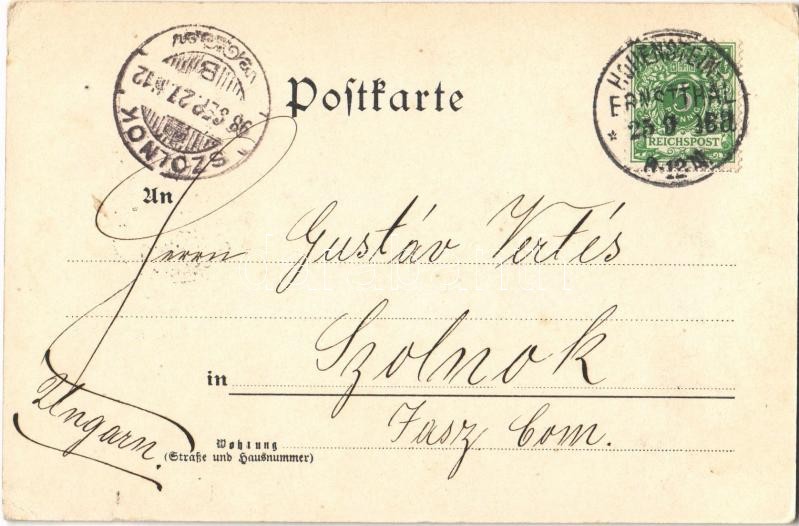 SZOLNOK
98 SEP. 27. N12
B
Postkarte
HOHENSTEIN-
ERNSTTHAL
25 9 98
8-12 N.
5
REICHSPOST
An
Herrn Gustáv Vertés
in Szolnok
Ungarn.
Jasz Com.
Wohnung
(Straße und Hausnummer)